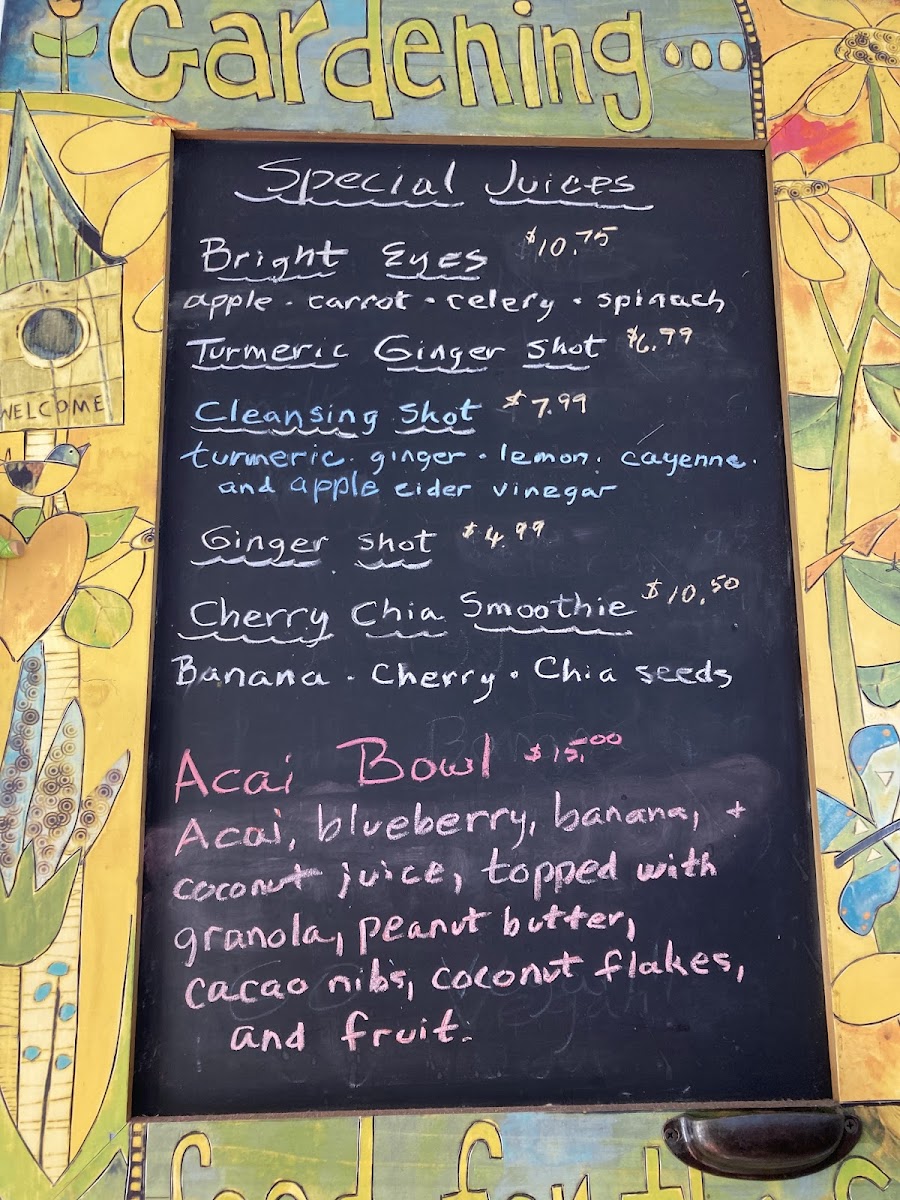 Gardening...
Special Juices
Bright Eyes $10.75
apple · carrot · celery · spinach
Turmeric Ginger shot $6.99
Cleansing shot $7.99
turmeric · ginger · lemon · cayenne ·
and apple cider vinegar
Ginger shot $4.99
Cherry Chia Smoothie $10.50
Banana · Cherry · Chia seeds
Acai Bowl $15.00
Acai, blueberry, banana, +
coconut juice, topped with
granola, peanut butter,
cacao nibs, coconut flakes,
and fruit.
WELCOME
food for